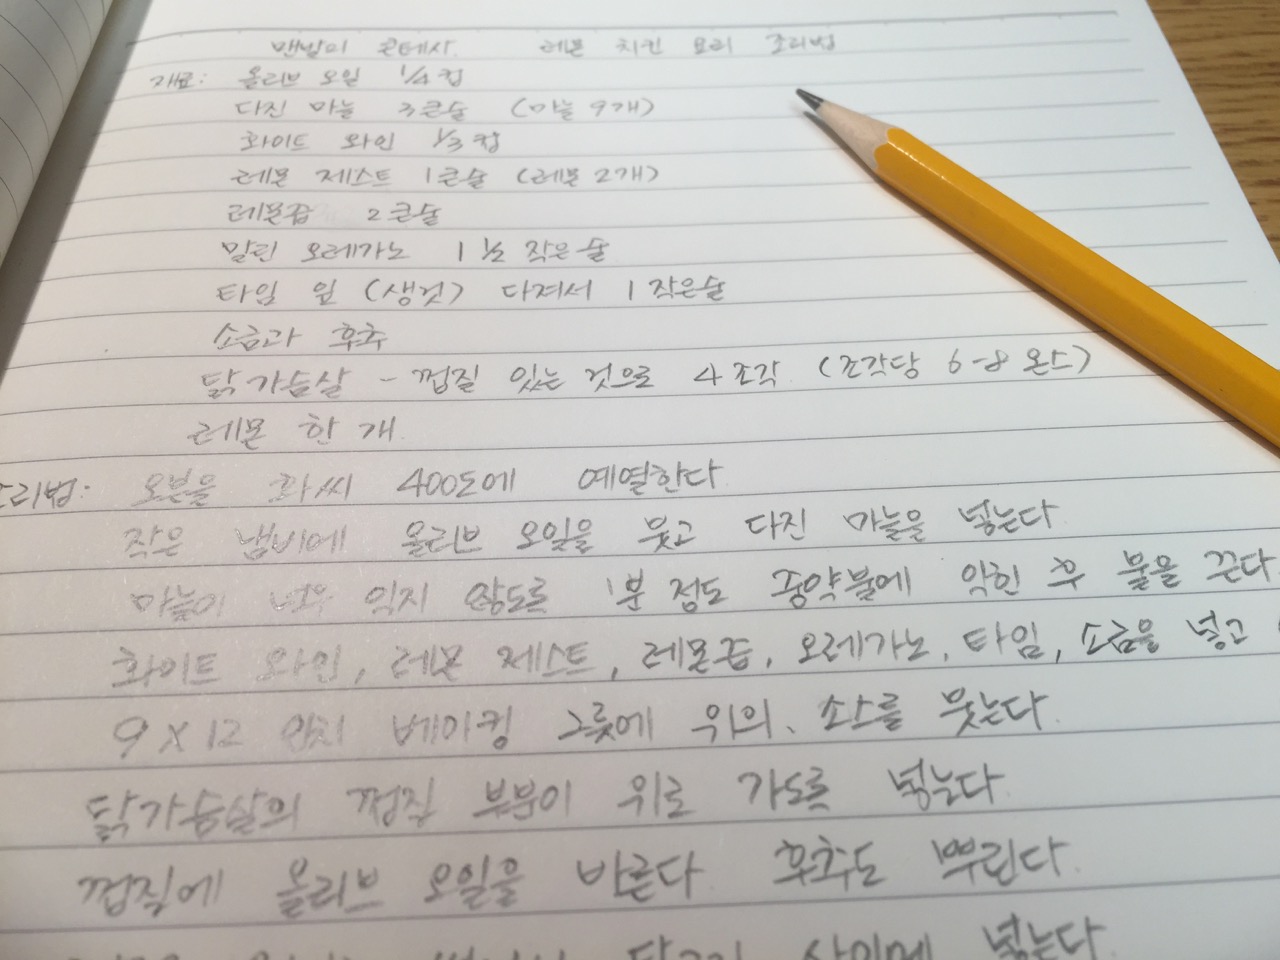 맨발의 콘테사. 레몬 치킨 요리 조리법
재료: 올리브 오일 1/4 컵
다진 마늘 3큰술 (마늘 9개)
화이트 와인 1/3 컵
레몬 제스트 1큰술 (레몬 2개)
레몬즙 2큰술
말린 오레가노 1 1/2 작은술
타임 잎 (생것) 다져서 1 작은술
소금과 후추
닭가슴살 - 껍질 있는 것으로 4조각 (조각당 6-8온스)
레몬 한 개
조리법: 오븐을 화씨 400도에 예열한다
작은 냄비에 올리브 오일을 붓고 다진 마늘을 넣는다
마늘이 너무 익지 않도록 1분 정도 중약불에 익힌 후 불을 끈다
화이트 와인, 레몬 제스트, 레몬즙, 오레가노, 타임, 소금을 넣고
9 X 12 인치 베이킹 그릇에 위의 소스를 붓는다.
닭가슴살의 껍질 부분이 위로 가도록 넣는다
껍질에 올리브 오일을 바른다 후추도 뿌린다.
사이에 넣는다.